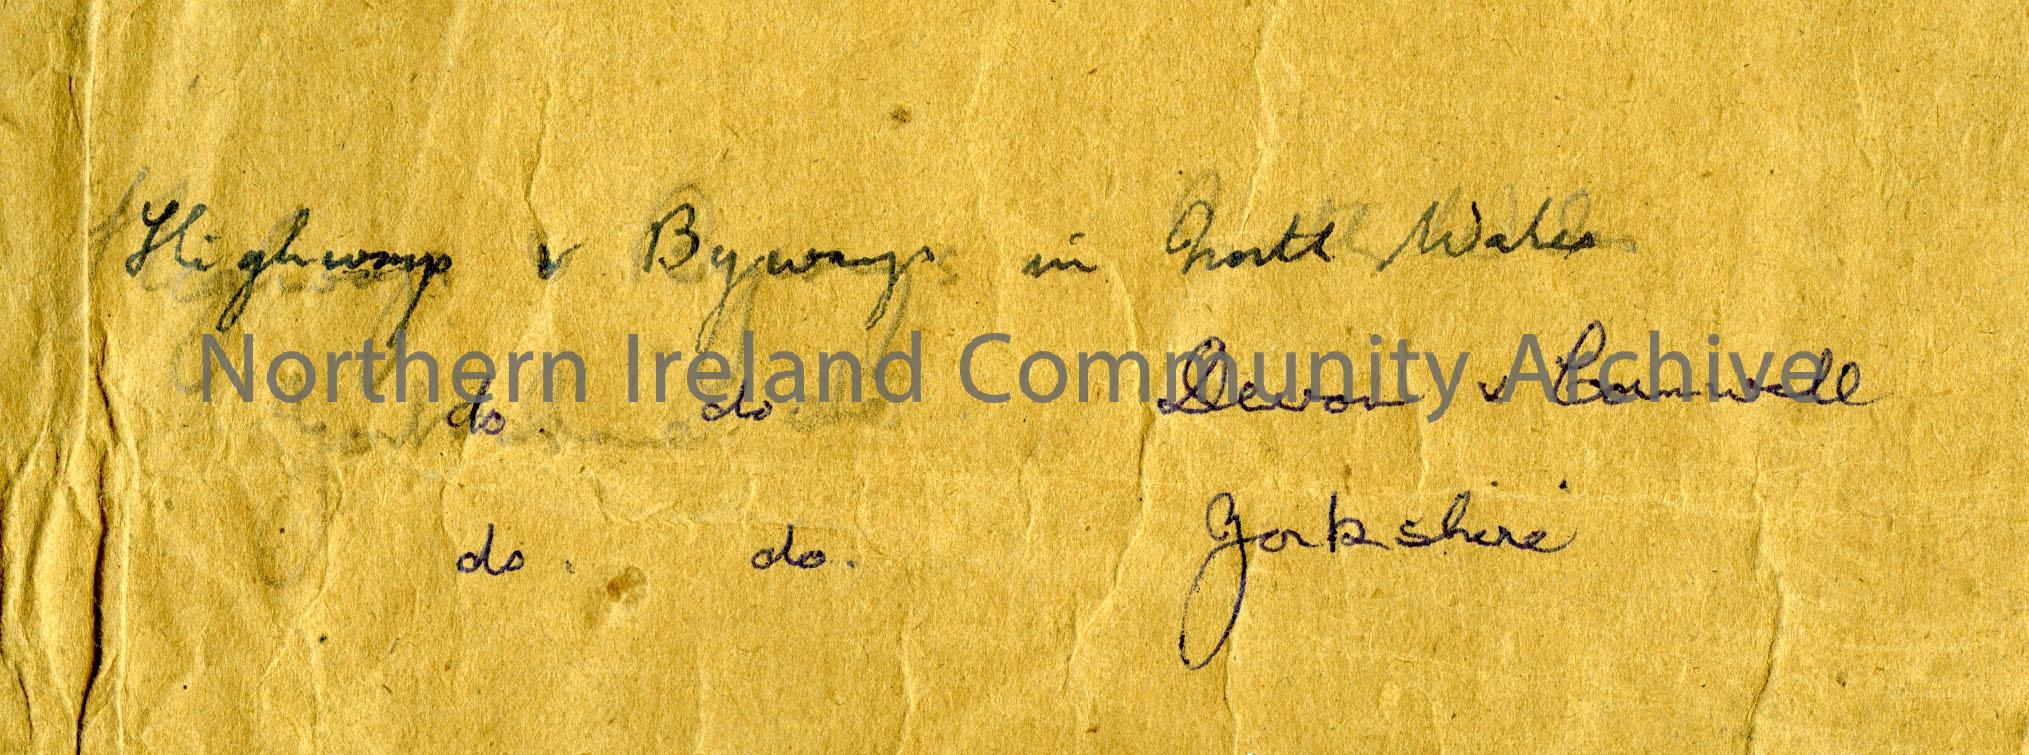 Highways & Byways in North Wales
Northern Ireland Community Archive
do. do. Devon & Cornwall
do. do. Yorkshire